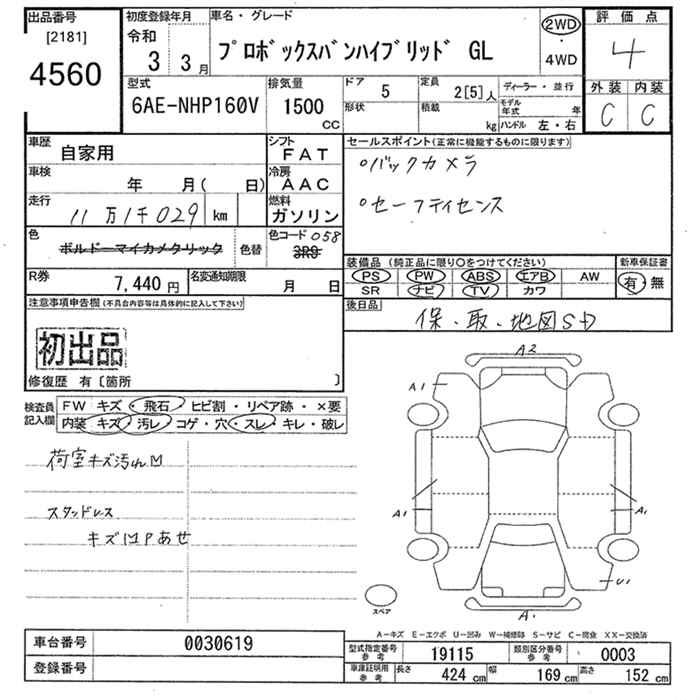 出品番号
[2181]
4560
初度登録年月
令和
3 3 月
車名・グレード
プロボックスバンハイブリッド GL
2WD
・
4WD
評価点
4
外装 内装
C C
型式
6AE-NHP160V
排気量
1500
CC
ドア 5
形状
定員 2[5]人
積載 kg
ディーラー・並行
モデル年式 年
ハンドル 左・右
車歴
自家用
シフト
FAT
車検
年 月( 日)
冷房
AAC
走行
11万1千029 km
燃料
ガソリン
色
ボルドーマイカメタリック
色替
色コード 058
3R9
R券
7,440 円
名変通知期限
月 日
セールスポイント(正常に機能するものに限ります)
○バックカメラ
○セーフティセンス
装備品(純正品に限り○をつけてください)
PS PW ABS エアB AW
SR ナビ TV カワ
新車保証書
有・無
後日品
保・取・地図SD
注意事項申告欄(不具合内容等は具体的に記入して下さい)
初出品
修復歴 有〔箇所 〕
検査員
記入欄
FW キズ・飛石・ヒビ割・リペア跡・×要
内装 キズ・汚レ・コゲ・穴・スレ・キレ・破レ
荷室キズ汚れ凹
スタッドレス
キズ凹Pあせ
A2
A1
A1
A1
U1
A1
スペア
A-キズ E-エクボ U-凹み W-補修跡 S-サビ C-腐食 XX-交換済
車台番号 0030619
登録番号
型式指定番号
参考
19115
類別区分番号
参考
0003
車庫証明用
参考
長さ 424 cm 幅 169 cm 高さ 152 cm